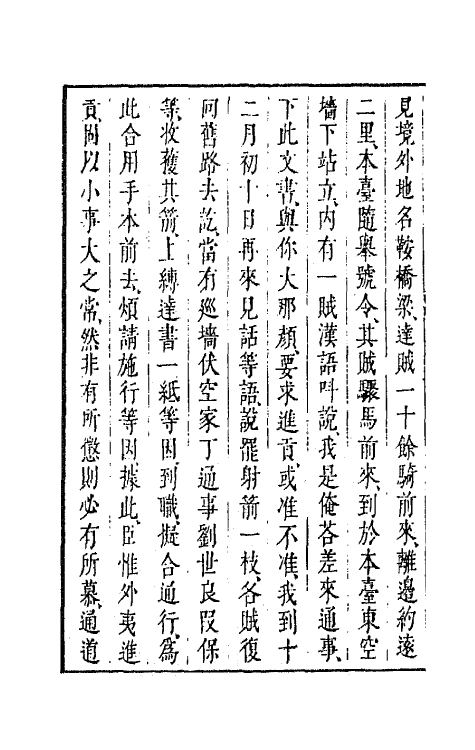 見境外地名鞍橋梁、達賊一十餘騎前來、離邊約遠
二里、本臺隨舉號令、其賊驟馬前來、到於本臺東空
墻下站立、内有一賊漢語呌說、我是俺荅差來通事、
下此文書、與你大那顏、要求進貢、或准不准、我到十
二月初十日再來見話等語、說罷射箭一枝、各賊復
囘舊路去訖、當有廵墻伏空家丁通事劉世良叚保
等、收獲其箭、上縛達書一紙等因、到職、擬合通行、爲
此合用手本前去、煩請施行等因、據此、臣惟外夷進
貢、固以小事大之常、然非有所懲則必有所慕、通道